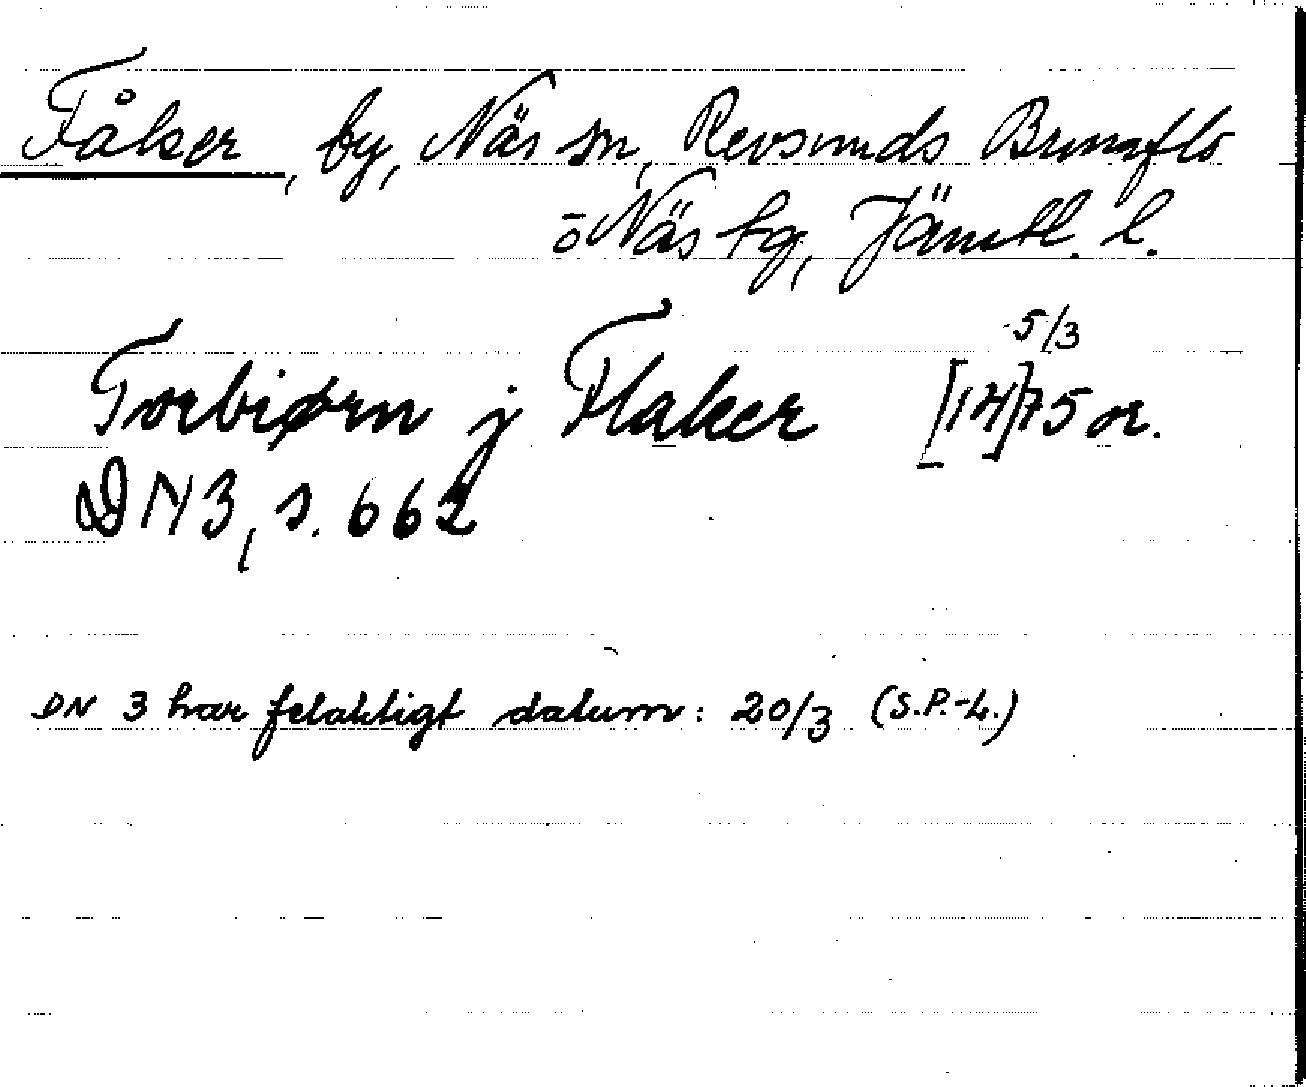 Fåker, by, Näs sn, Revsunds Brunflo
ō Näs tg, Jämtl. l.
Torbiørn j Flaker [14]75 5/3 or.
DN 3, s. 662
DN 3 har felaktigt datum: 20/3 (S.P.-L.)